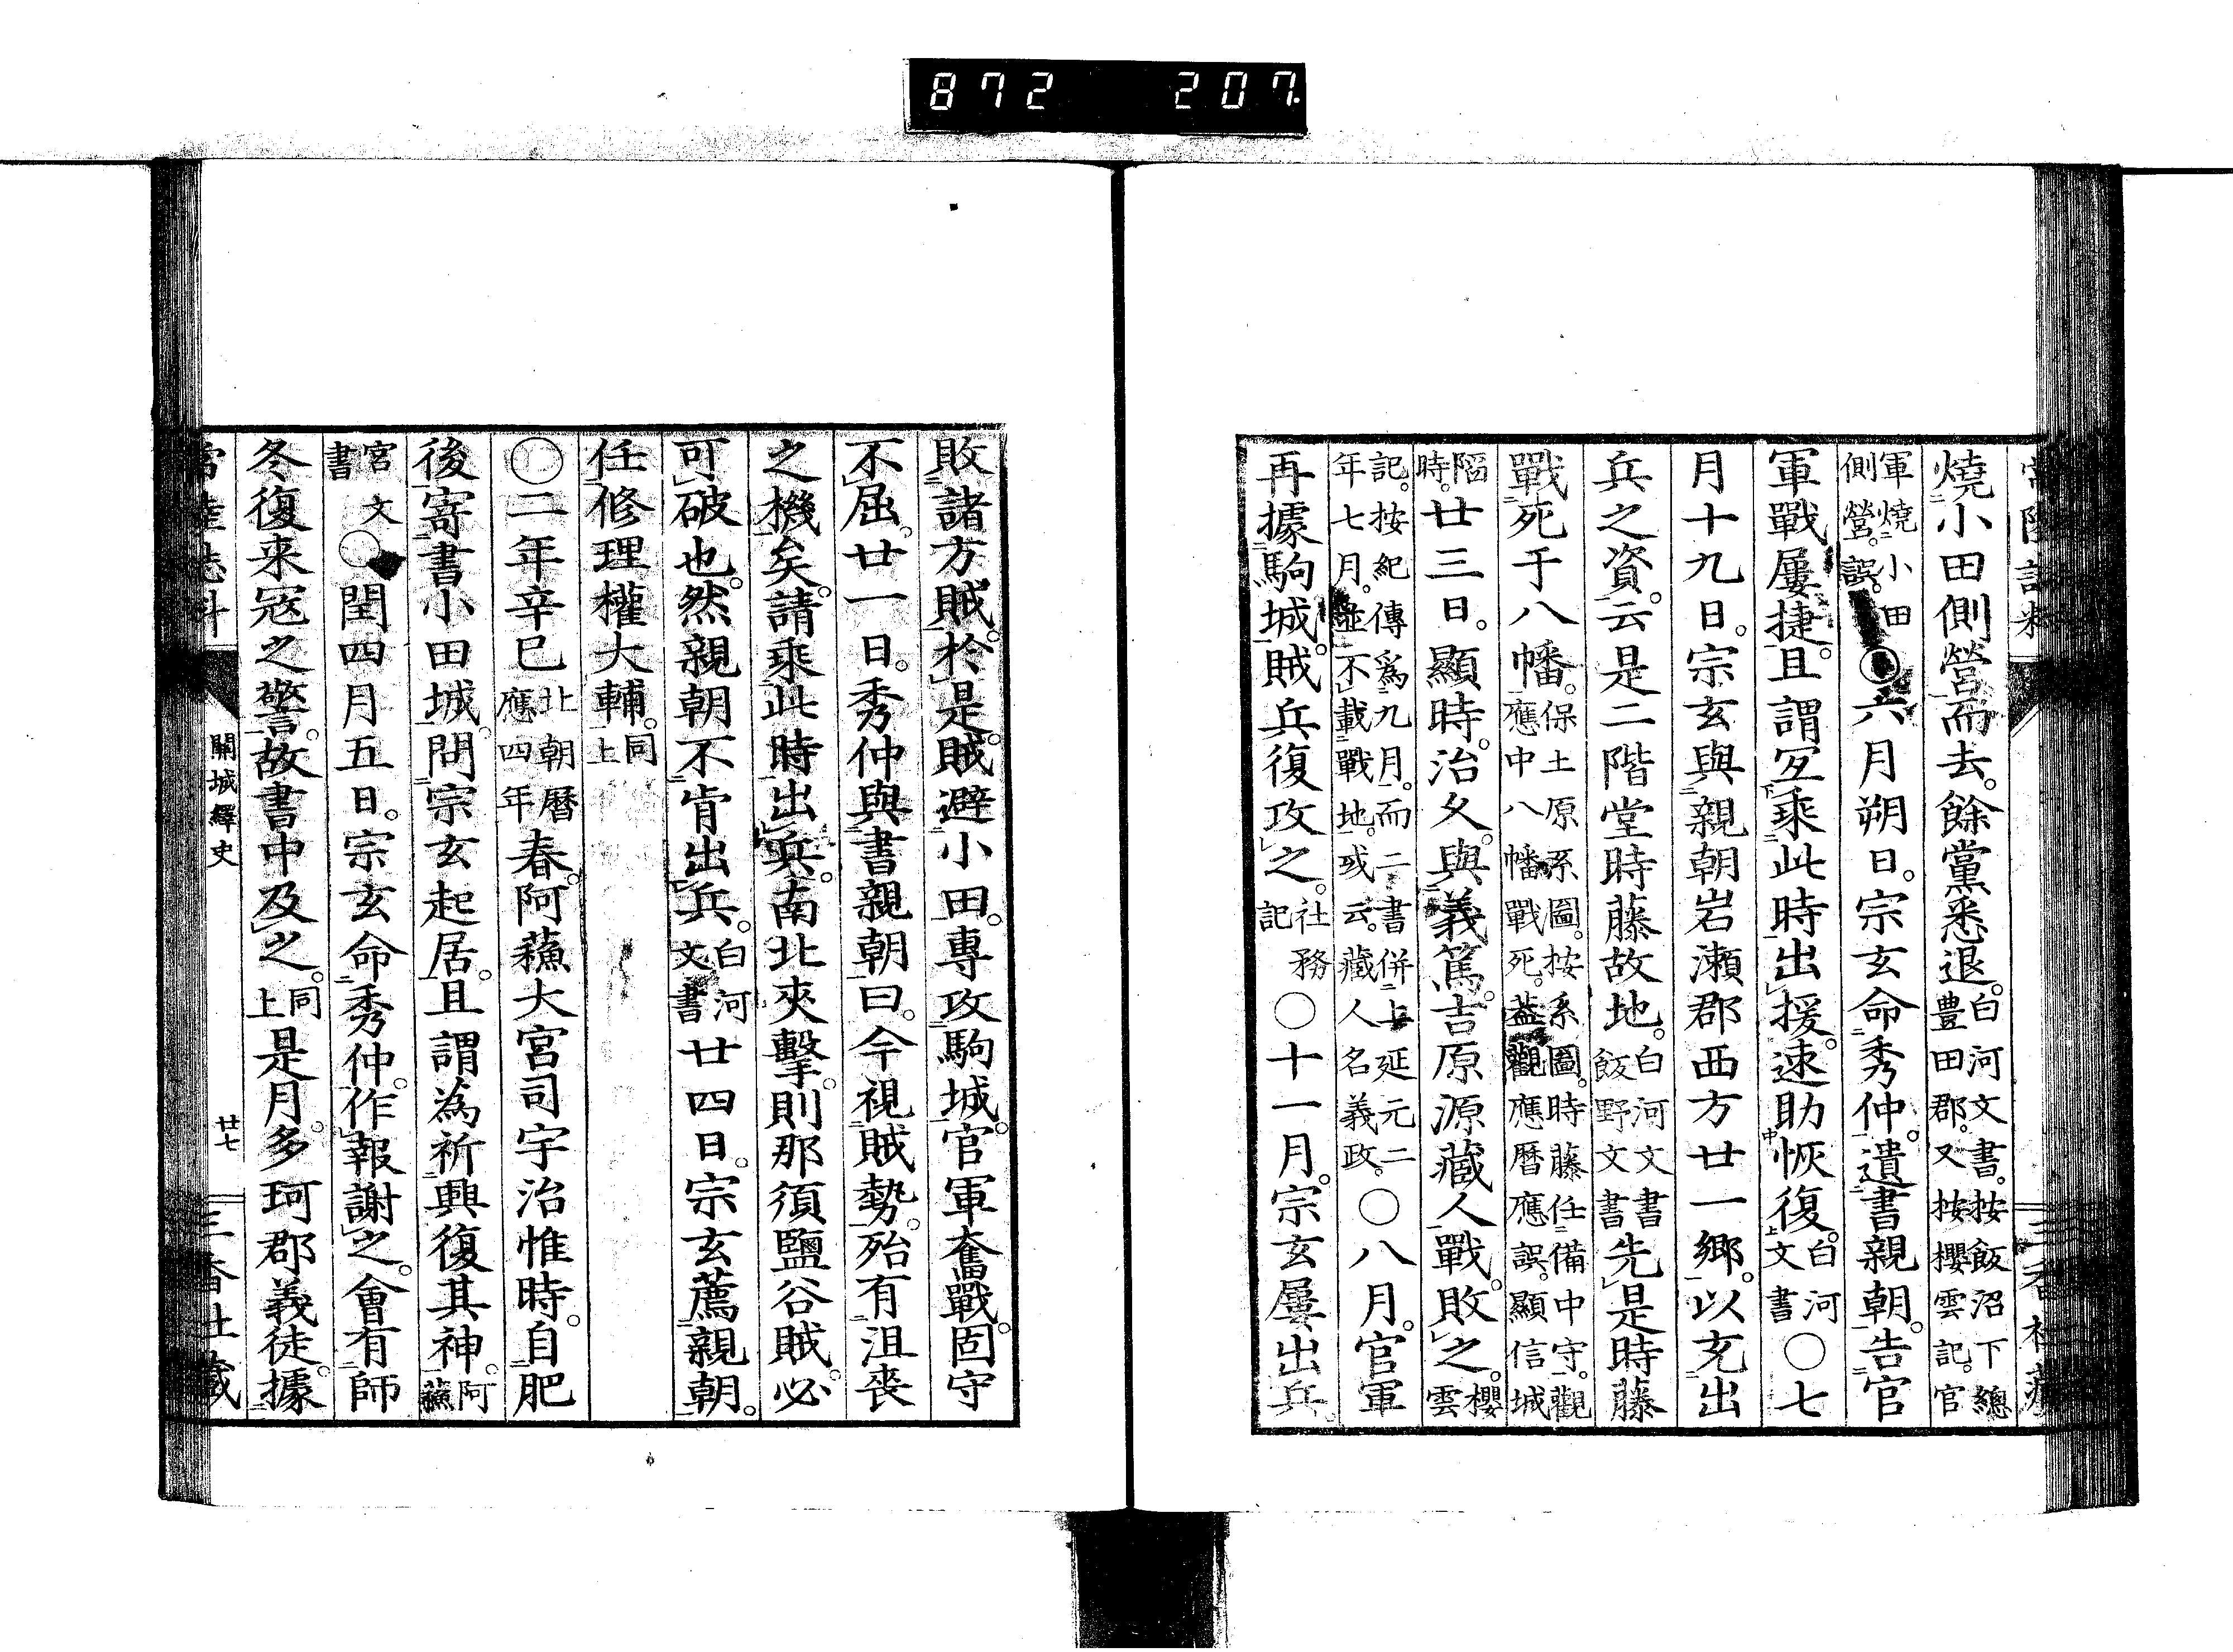 872 207
燒小田側營而去。餘黨悉退。白河文書。按飯沼下總豊田郡。又按櫻雲記。官
軍燒小田側營。誤。○六月朔日。宗玄命秀仲。遺書親朝。告官
軍戰屢捷。且謂宜乘此時出援。速助恢復。白河文書○七
月十九日。宗玄與親朝岩瀬郡西方廿一郷。以充出
兵之資。云是二階堂時藤故地。白河文書飯野文書先是時藤
戰死于八幡。保土原系圖。按系圖。時藤任備中守。觀應中八幡戰死。蓋觀應暦應誤。顯信城
陷時。廿三日。顯時。治久。與義篤。吉原源藏人戰。敗之。櫻雲
記。按紀傳爲九月。而二書併上延元二年七月。並不載戰地。或云。藏人名義政。○八月。官軍
再據駒城。賊兵復攻之。社務記○十一月。宗玄屢出兵。
敗諸方賊。於是。賊避小田。專攻駒城。官軍奮戰。固守
不屈。廿一日。秀仲與書親朝曰。今視賊勢。殆有沮喪
之機矣。請乘此時出兵。南北夾擊。則那須鹽谷賊。必
可破也。然親朝不肯出兵。白河文書廿四日。宗玄薦親朝。
任修理權大輔。同上
○二年辛巳北朝暦應四年春。阿蘇大宮司宇治惟時。自肥
後寄書小田城。問宗玄起居。且謂為祈興復其神。阿蘇
宮文書○閏四月五日。宗玄命秀仲。作報謝之。會有師
冬復来冦之警。故書中及之。同上是月。多珂郡義徒。據
關城繹史
廿七